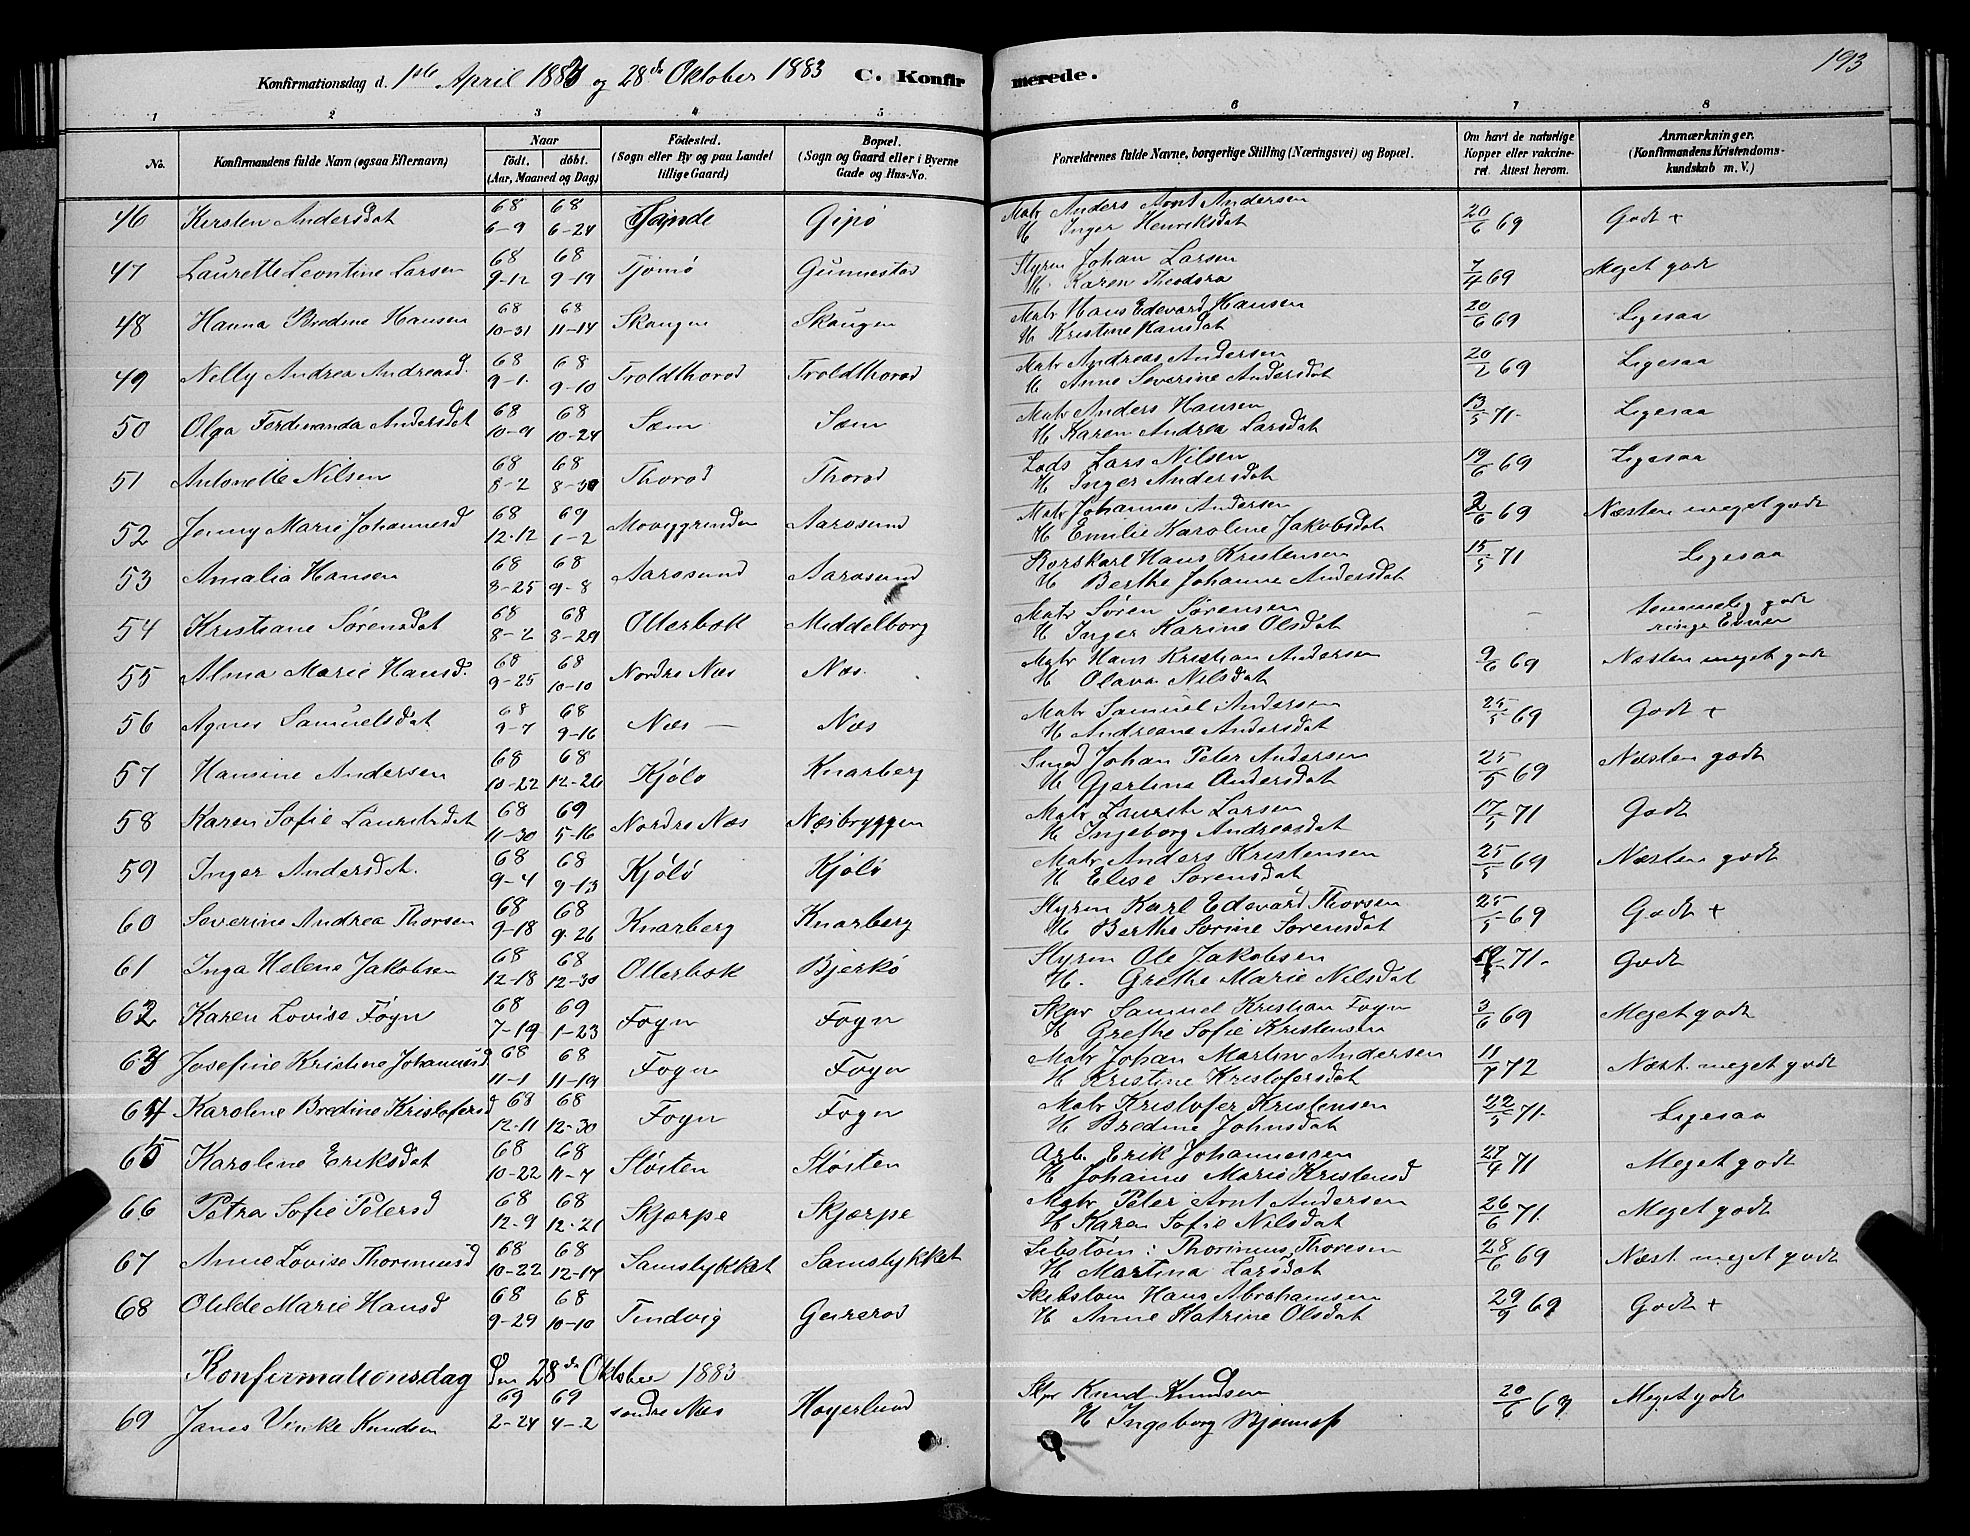 193
Konfirmationsdag d. 1ste April 1883 og 28de Oktober 1883 C. Konfirmerede.
1 2 3 4 5 6 7 8
No. Konfirmandens fulde Navn (ogsaa Efternavn) Naar født, døbt. (Aar, Maaned og Dag) Födested. (Sogn eller By og paa Landet tillige Gaard) Bopæl. (Sogn og Gaard eller i Byerne Gade og Hus-No. Forældrenes fulde Navne, borgerlige Stilling (Næringsvei) og Bopæl. Om havt de naturlige Kopper eller vakcineret. Attest herom. Anmærkninger. (Konfirmandens Kristendomskundskab m. V.)
46 Kirsten Andersdat 68 6-9 68 6-24 Gipö Matr Anders Arnt Andersen H Inger Henriksdat 20/6 69 Godt +
47 Laurette Leontine Larsen 68 9-12 68 9-19 Tjömö Gunnestad Styrm Johan Larsen H Karen Theodora 7/4 69 Meget godt
48 Hanna Bredine Hansen 68 10-31 68 11-14 Skaugen Skaugen Matr Hans Edevard Hansen H Kristine Hansdat 20/6 69 Ligesaa
49 Nelly Andrea Andreasd. 68 9-1. 68 9-10 Troldthorod Troldthorod Matr Andreas Andersen H Anne Severine Andersdat 20/2 69 Ligesaa
50 Olga Ferdinanda Andersdat 68 10-9 68 10-24 Sæm Sæm Matr Anders Hansen H Karen Andrea Larsdat 13/5 71- Ligesaa
51 Antonette Nilsen 68 8-2 68 8-30 Thorod Thorod Lods Lars Nilsen H Inger Andersdat 19/6 69 Ligesaa
52 Jenny Marie Johannesd 68 12-12 69 1-2 Aarosund Matr Johannes Andersen H Emilie Karoline Jakobsdat 2/6 69 Næsten meget godt
53 Amalia Hansen 68 8-25 68 9-8 Aarosund Aarosund Korskarl Hans Kristensen H Berthe Johanne Andersdat 15/5 71 Ligesaa
54 Kristiane Sörensdat 68 8-2 68 8-29 Otterbæk Middelborg Matr Sören Sörensen H Inger Karine Olsdat - temmelig godt ringe Evner
55 Alma Marie Hansd. 68 9-25 68 10-10 Nordre Næs Næs. Matr Hans Kristian Andersen H Olava Nilsdat 9/6 69 Næsten meget godt
56 Agnes Samuelsdat 68 9-7 68 9-16 Næs - Næs Matr Samuel Andersen H Andreane Andersdat 25/5 69 Godt +
57 Hansine Andersen 68 10-22 68 12-26 Kjölö Knarberg Smed Johan Peter Andersen H Gjertine Andersdat 25/5 69 Næsten godt
58 Karen Sofie Lauritsdat 68 11-30 69 5-16 Nordre Næs Næsbryggen Matr Laurits Larsen H Ingeborg Andreasdat 17/5 71 Godt
59 Inger Andersdat. 68 9-4 68 9-13 Kjölö Kjölö Matr Anders Kristensen H Elise Sörensdat 25/5 69 Næsten godt
60 Severine Andrea Thorsen 68 9-18 68 9-26 Knarberg Knarberg Styrm Karl Edevard Thorsen H Berthe Sørine Sørensdat 25/5 69 Godt +
61 Inga Helene Jakobsen 68 12-18 68 12-30 Otterbæk Bjerkö Styrm Ole Jakobsen H. Grethe Marie Nilsdat 71- Godt
62 Karen Lovise Föyn 68 7-19 69 1-23 Foyn Foyn Skpr Samuel Kristian Foyn H Grethe Sofie Kristensen 3/6 69 Meget godt
63 Josefine Kristine Johannesd 68 11-1 68 11-19 Foyn Foyn Matr Johan Martin Andersen H Kristine Kristofersdat 11/7 72 Næst. meget godt
64 Karoline Bredine Kristofersd 68 12-11 68 12-30 Foyn Foyn Matr Kristofer Kristensen H Bredine Johnsdat 22/5 71. Ligesaa
65 Karoline Eriksdat 68 10-22 68 11-7 Stösten Stösten Arb. Erik Johannesen H Johanne Marie Kristensd 27/4 71 Meget godt
66 Petra Sofie Petersd 68 12-9 68 12-21 Skjærpe Skjærpe Matr Peter Arnt Andersen H Karen Sofie Nilsdat 26/6 71. Meget godt
67 Anne Lovise Thorinusd 68 10-22 68 12-17 Samstykket Samstykket Sebstöm: Thorinus Thoresen H Martina Larsdat 28/6 69 Næst meget godt
68 Olilde Marie Hansd 68 9-29 68 10-10 Tindvig Geirerod Skibstöm Hans Abrahamsen H Anne Katrine Olsdat 29/9 69 Godt +
Konfirmationsdag Den 28de Oktober 1883
69 Vinke Knudsen 69 2-24 69 4-2 søndre Næs Høyerlund Skpr Knud Knudsen H Ingeborg 20/6 69 Meget godt